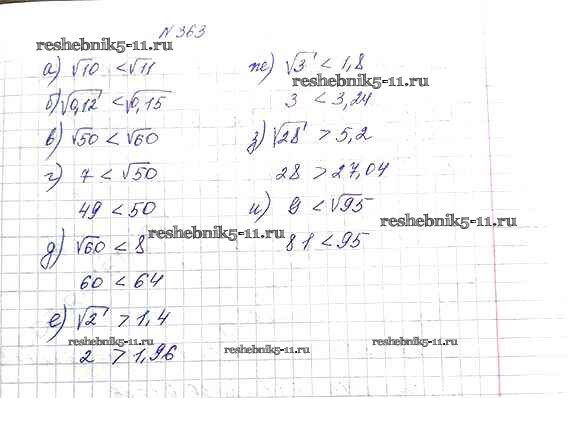 N 363
reshebnik5-11.ru
reshebnik5-11.ru
а) √10 < √11
б) √0,12 < √0,15
в) √50 < √60
г) 7 < √50
49 < 50
д) √60 < 8
60 < 64
е) √2 > 1,4
2 > 1,96
ж) √3 < 1,8
3 < 3,24
з) √28 > 5,2
28 > 27,04
и) 9 < √95
81 < 95
reshebnik5-11.ru
reshebnik5-11.ru
reshebnik5-11.ru
reshebnik5-11.ru
reshebnik5-11.ru
reshebnik5-11.ru